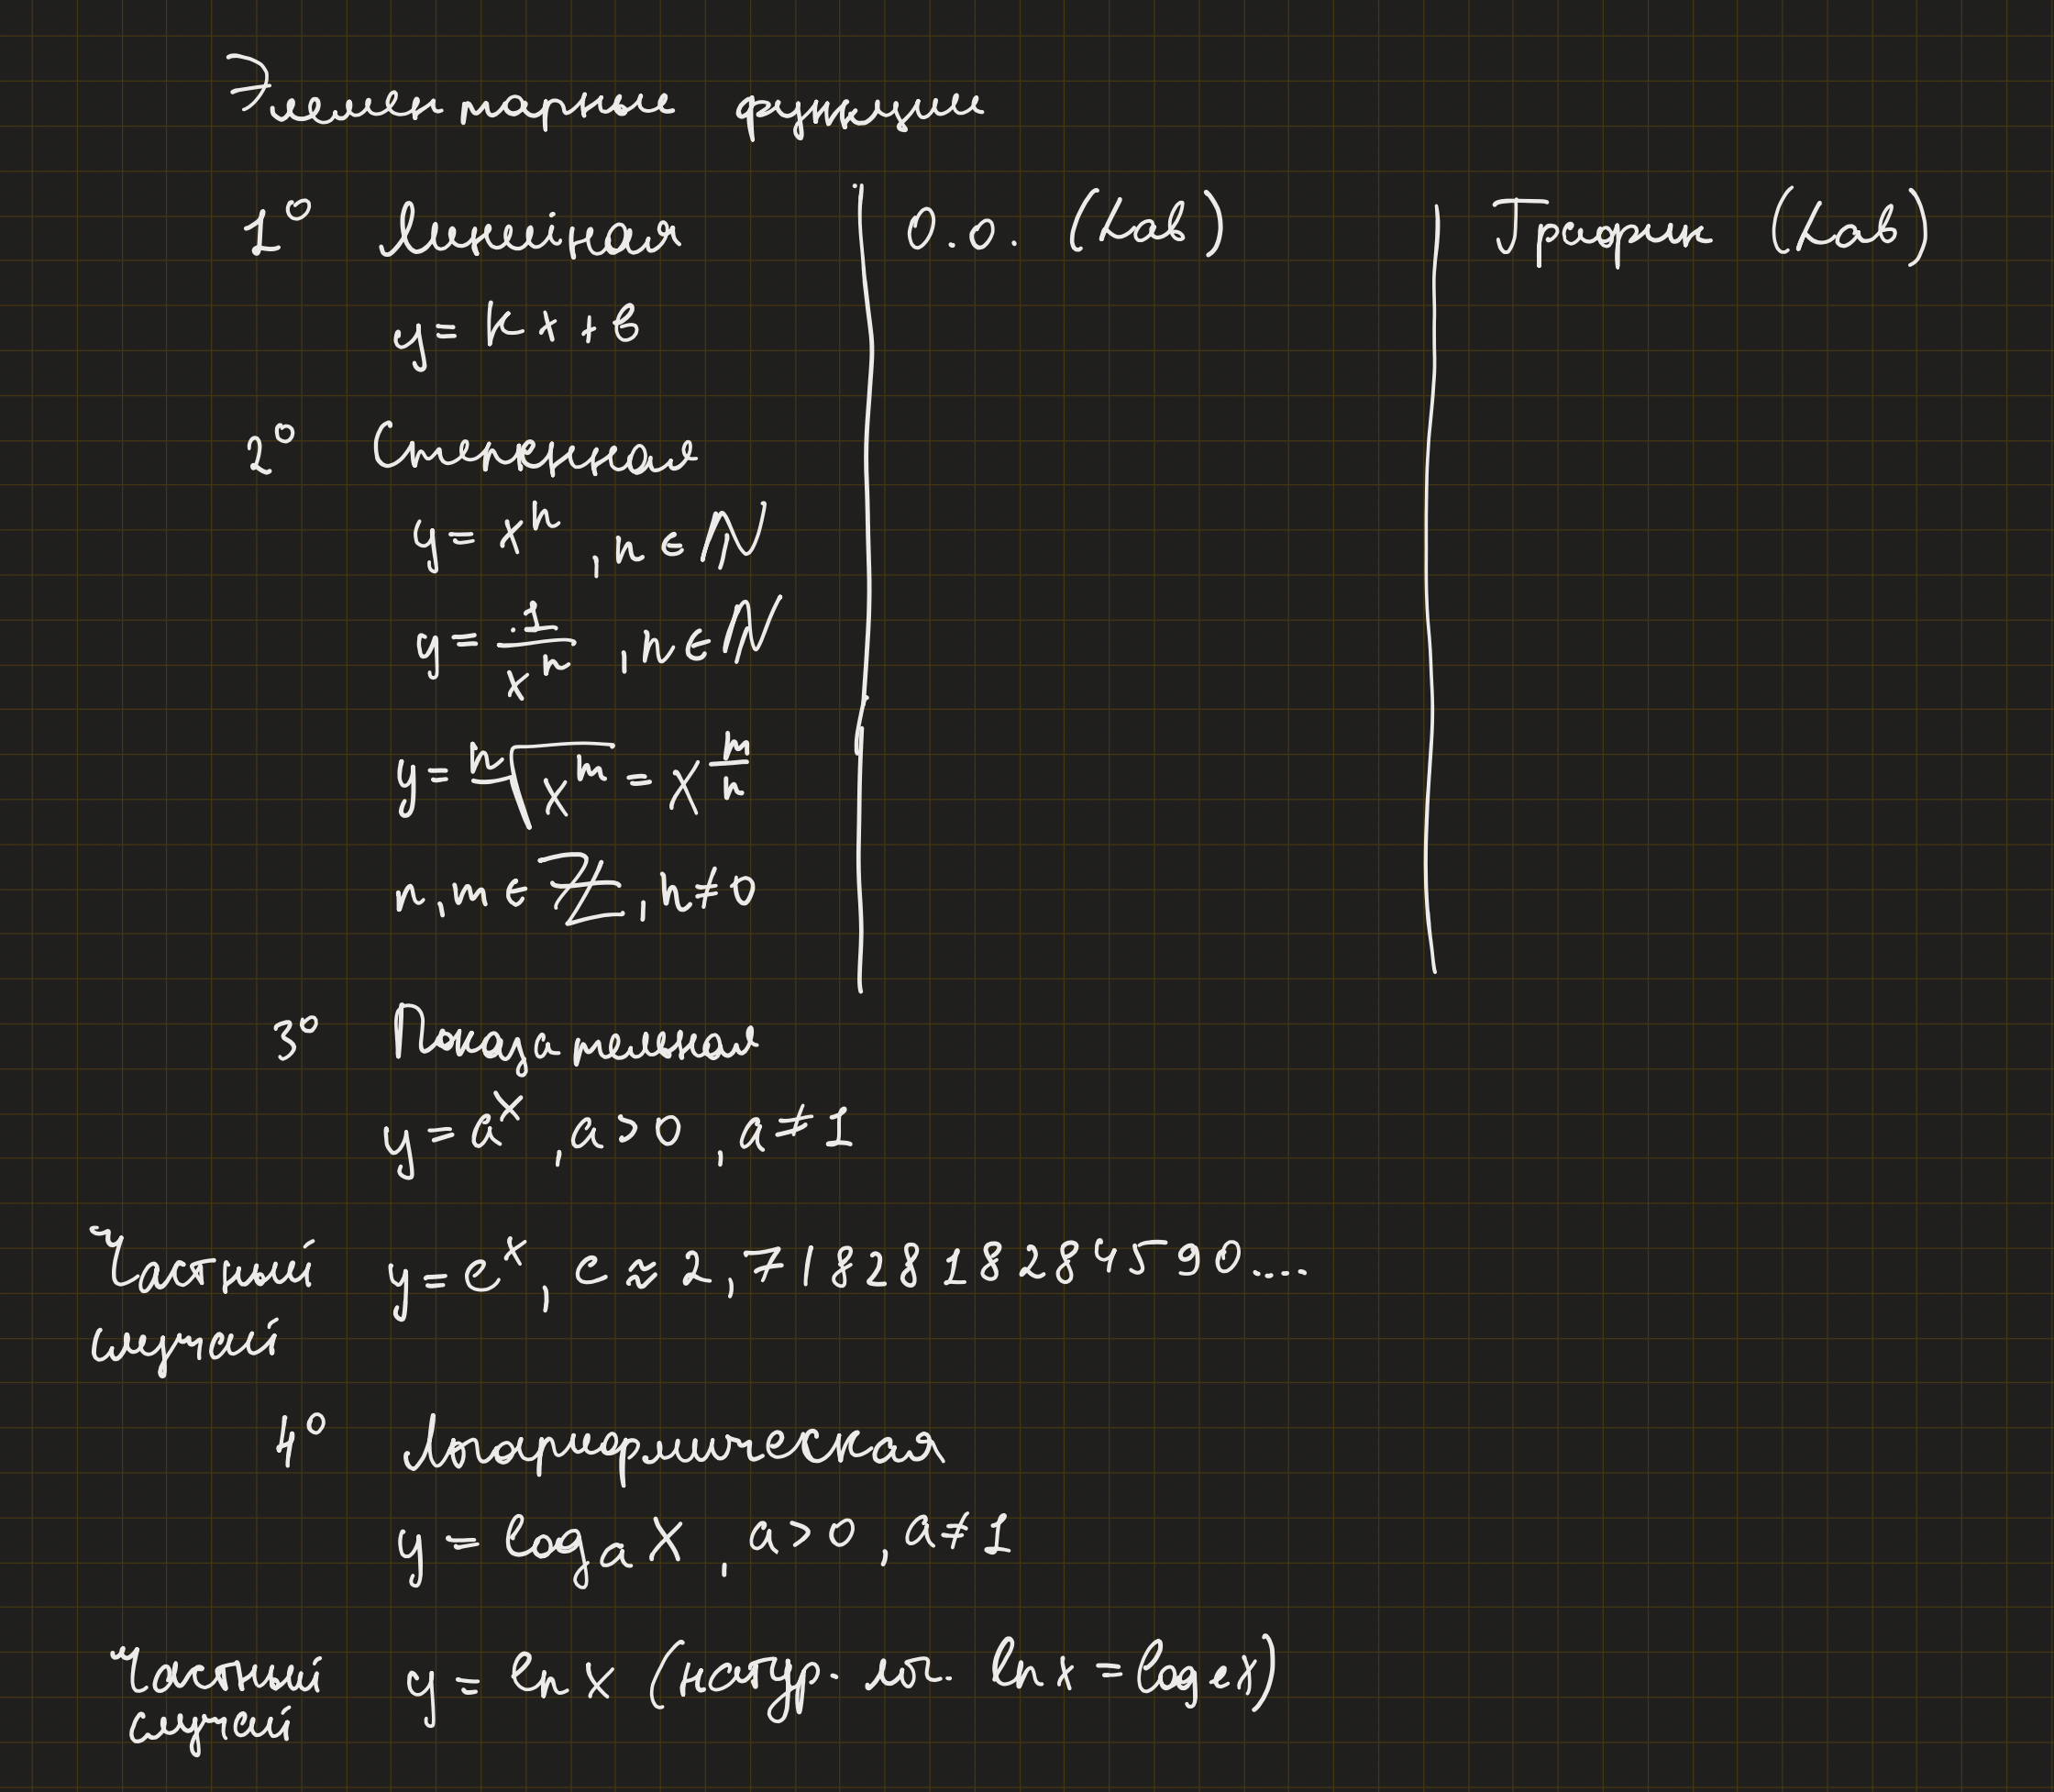 Элементарные функции
1° Линейная О.О. (Lab) График (Lab)
y = kx + b
2° Степенная
y = xⁿ, n ∈ ℕ
y = 1/xⁿ, n ∈ ℕ
y = ⁿ√(x^m) = x^(m/n)
n, m ∈ ℤ, n ≠ 0
3° Показательная
y = a^x, a > 0, a ≠ 1
Частный случай y = e^x, e ≈ 2,7182818284590....
4° Логарифмическая
y = log_a x, a > 0, a ≠ 1
Частный случай y = ln x (натур. лог. ln x = log_e x)